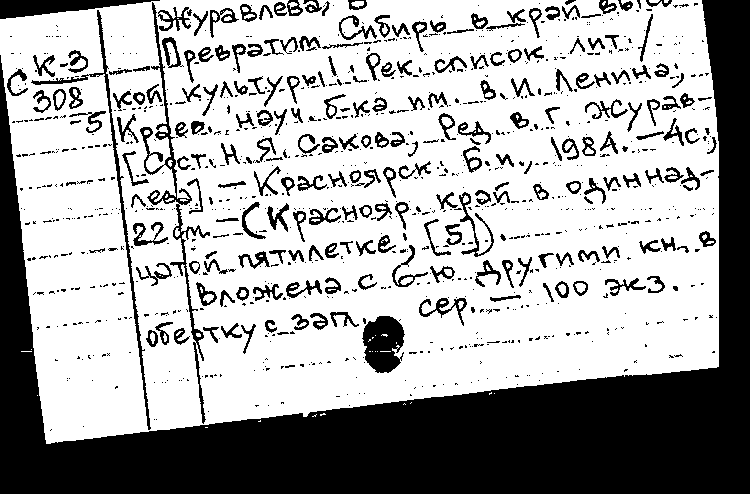 Журавлева, В
Превратим Сибирь в край высо
С К-3
308
-5
кой культуры!: Рек. список лит. /
Краев. науч. б-ка им. В. И. Ленина;
[Сост. Н. Я. Сакова; Ред. В. Г. Журав-
лева]. — Красноярск: Б. и., 1984. — 4с.;
22 см. — (Краснояр. край в одиннад-
цатой пятилетке; [5]).
Вложена с 6-ю другими кн. в
обертку с загл. сер. — 100 экз.